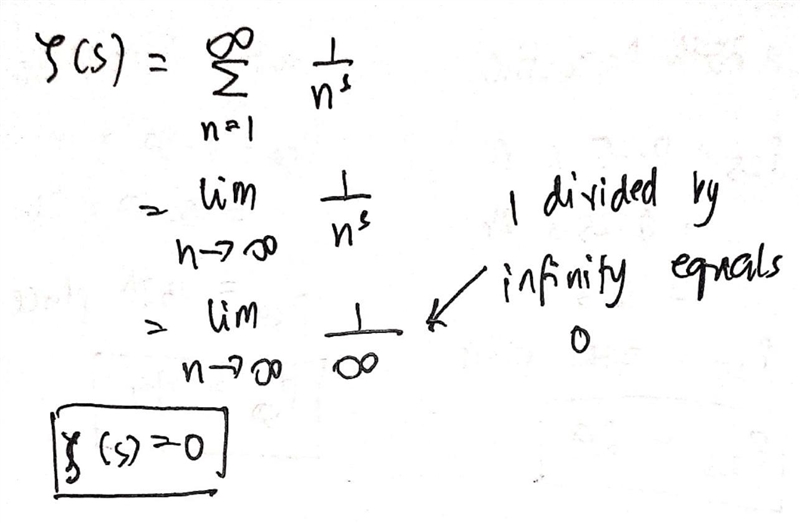 ζ(s) = ∞ Σ n=1 1/n^s
= lim n→∞ 1/n^s
= lim n→∞ 1/∞
1 divided by
infinity equals
0
ζ(s)=0